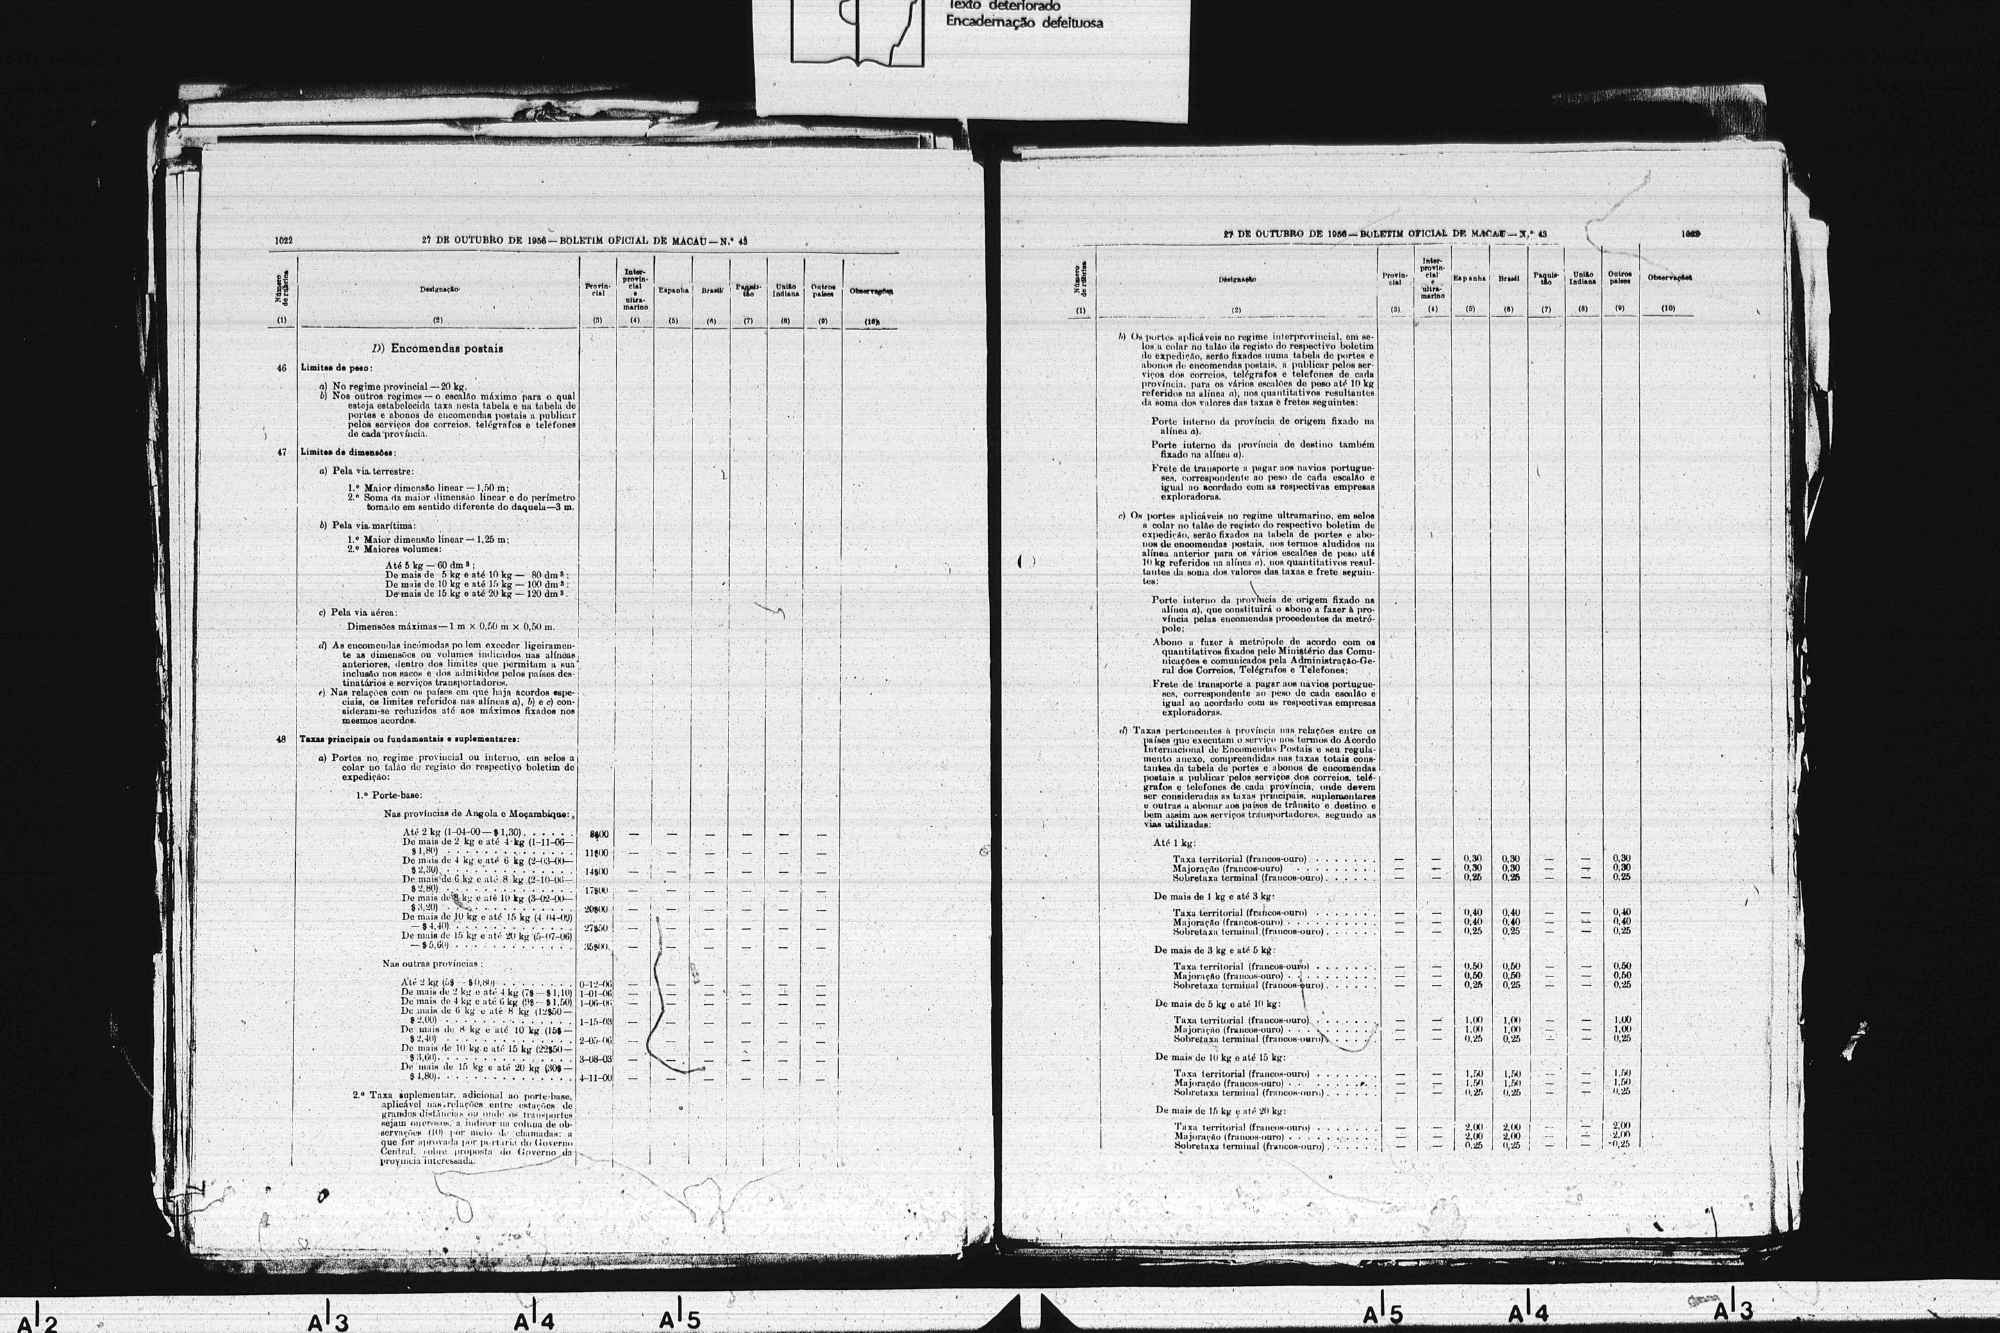 Texto deteriorado
Encadernação defeituosa
1022
27 DE OUTUBRO DE 1956 — BOLETIM OFICIAL DE MACAU — N.º 43
Número de rubrica
Designação
Provincial
Interprovincial e ultramarino
Espanha
Brasil
Paquistão
União Indiana
Outros países
Observações
(1) (2) (3) (4) (5) (6) (7) (8) (9) (10)
D) Encomendas postais
46 Limites de peso:
a) No regime provincial — 20 kg.
b) Nos outros regimes — o escalão máximo para o qual
esteja estabelecida taxa nesta tabela e na tabela de
portes e abonos de encomendas postais a publicar
pelos serviços dos correios, telégrafos e telefones
de cada província.
47 Limites de dimensões:
a) Pela via terrestre:
1.º Maior dimensão linear — 1,50 m;
2.º Soma da maior dimensão linear e do perímetro
tomado em sentido diferente do daquela — 3 m.
b) Pela via marítima:
1.º Maior dimensão linear — 1,25 m;
2.º Maiores volumes:
Até 5 kg — 60 dm³;
De mais de 5 kg e até 10 kg — 80 dm³;
De mais de 10 kg e até 15 kg — 100 dm³;
De mais de 15 kg e até 20 kg — 120 dm³.
c) Pela via aérea:
Dimensões máximas — 1 m × 0,50 m × 0,50 m.
d) As encomendas incómodas podem exceder ligeiramen-
te as dimensões ou volumes indicados nas alíneas
anteriores, dentro dos limites que permitam a sua
inclusão nos sacos e dos admitidos pelos países des-
tinatários e serviços transportadores.
e) Nas relações com os países em que haja acordos espe-
ciais, os limites referidos nas alíneas a), b) e c) con-
sideram-se reduzidos até aos máximos fixados nos
mesmos acordos.
48 Taxas principais ou fundamentais e suplementares:
a) Portes no regime provincial ou interno, em selos a
colar no talão de registo do respectivo boletim de
expedição:
1.º Porte-base:
Nas províncias de Angola e Moçambique:
Até 2 kg (1-04-00 — $1,30) . . . . . 8$00 — — — — — —
De mais de 2 kg e até 4 kg (1-11-06 —
$1,80) . . . . . 11$00 — — — — — —
De mais de 4 kg e até 6 kg (2-03-00 —
$2,30) . . . . . 14$00 — — — — — —
De mais de 6 kg e até 8 kg (2-10-06 —
$2,80) . . . . . 17$00 — — — — — —
De mais de 8 kg e até 10 kg (3-02-00 —
$3,20) . . . . . 20$00 — — — — — —
De mais de 10 kg e até 15 kg (4-04-09)
— $4,40) . . . . . 27$50 — — — — — —
De mais de 15 kg e até 20 kg (5-07-06)
— $5,60) . . . . . 35$00 — — — — — —
Nas outras províncias:
Até 2 kg (5$ — $0,80) . . . . . 0-12-06 — — — — — —
De mais de 2 kg e até 4 kg (7$ — $1,10) 1-01-06 — — — — — —
De mais de 4 kg e até 6 kg (9$ — $1,50) 1-06-06 — — — — — —
De mais de 6 kg e até 8 kg (12$50 —
$2,00) . . . . . 1-15-03 — — — — — —
De mais de 8 kg e até 10 kg (15$ —
$2,40) . . . . . 2-05-06 — — — — — —
De mais de 10 kg e até 15 kg (22$50 —
$3,60) . . . . . 3-08-03 — — — — — —
De mais de 15 kg e até 20 kg (30$ —
$4,80) . . . . . 4-11-00 — — — — — —
2.º Taxa suplementar, adicional ao porte-base,
aplicável nas relações entre estações de
grandes distâncias ou onde os transportes
sejam onerosos, a indicar na coluna de ob-
servações (10) por meio de chamadas: a
que for aprovada por portaria do Governo
Central, sobre proposta do Governo da
província interessada.
27 DE OUTUBRO DE 1956 — BOLETIM OFICIAL DE MACAU — N.º 43
Número de rubrica
Designação
Provincial
Interprovincial e ultramarino
Espanha
Brasil
Paquistão
União Indiana
Outros países
Observações
(1) (2) (3) (4) (5) (6) (7) (8) (9) (10)
b) Os portes aplicáveis no regime interprovincial, em se-
los a colar no talão de registo do respectivo boletim
de expedição, serão fixados numa tabela de portes e
abonos de encomendas postais, a publicar pelos ser-
viços dos correios, telégrafos e telefones de cada
província, para os vários escalões de peso até 10 kg
referidos na alínea a), nos quantitativos resultantes
da soma dos valores das taxas e fretes seguintes:
Porte interno da província de origem fixado na
alínea a).
Porte interno da província de destino também
fixado na alínea a).
Frete de transporte a pagar aos navios portugue-
ses, correspondente ao peso de cada escalão e
igual ao acordado com as respectivas empresas
exploradoras.
c) Os portes aplicáveis no regime ultramarino, em selos
a colar no talão de registo do respectivo boletim de
expedição, serão fixados na tabela de portes e abo-
nos de encomendas postais, nos termos aludidos na
alínea anterior para os vários escalões de peso até
10 kg referidos na alínea a), nos quantitativos resul-
tantes da soma dos valores das taxas e frete seguin-
tes:
Porte interno da província de origem fixado na
alínea a), que constituirá o abono a fazer à pro-
víncia pelas encomendas procedentes da metró-
pole;
Abono a fazer à metrópole de acordo com os
quantitativos fixados pelo Ministério das Comu-
nicações e comunicados pela Administração-Ge-
ral dos Correios, Telégrafos e Telefones;
Frete de transporte a pagar aos navios portugue-
ses, correspondente ao peso de cada escalão e
igual ao acordado com as respectivas empresas
exploradoras.
d) Taxas pertencentes à província nas relações entre os
países que executam o serviço nos termos do Acordo
Internacional de Encomendas Postais e seu regula-
mento anexo, compreendidas nas taxas totais cons-
tantes da tabela de portes e abonos de encomendas
postais a publicar pelos serviços dos correios, telé-
grafos e telefones de cada província, onde devem
ser consideradas as taxas principais, suplementares
e outras a abonar aos países de trânsito e destino e
bem assim aos serviços transportadores, segundo as
vias utilizadas:
Até 1 kg:
Taxa territorial (francos-ouro) . . . . . — — 0,30 0,30 — — 0,30
Majoração (francos-ouro) . . . . . — — 0,30 0,30 — — 0,30
Sobretaxa terminal (francos-ouro) . . . . . — — 0,25 0,25 — — 0,25
De mais de 1 kg e até 3 kg:
Taxa territorial (francos-ouro) . . . . . — — 0,40 0,40 — — 0,40
Majoração (francos-ouro) . . . . . — — 0,40 0,40 — — 0,40
Sobretaxa terminal (francos-ouro) . . . . . — — 0,25 0,25 — — 0,25
De mais de 3 kg e até 5 kg:
Taxa territorial (francos-ouro) . . . . . — — 0,50 0,50 — — 0,50
Majoração (francos-ouro) . . . . . — — 0,50 0,50 — — 0,50
Sobretaxa terminal (francos-ouro) . . . . . — — 0,25 0,25 — — 0,25
De mais de 5 kg e até 10 kg:
Taxa territorial (francos-ouro) . . . . . — — 1,00 1,00 — — 1,00
Majoração (francos-ouro) . . . . . — — 1,00 1,00 — — 1,00
Sobretaxa terminal (francos-ouro) . . . . . — — 0,25 0,25 — — 0,25
De mais de 10 kg e até 15 kg:
Taxa territorial (francos-ouro) . . . . . — — 1,50 1,50 — — 1,50
Majoração (francos-ouro) . . . . . — — 1,50 1,50 — — 1,50
Sobretaxa terminal (francos-ouro) . . . . . — — 0,25 0,25 — — 0,25
De mais de 15 kg e até 20 kg:
Taxa territorial (francos-ouro) . . . . . — — 2,00 2,00 — — 2,00
Majoração (francos-ouro) . . . . . — — 2,00 2,00 — — 2,00
Sobretaxa terminal (francos-ouro) . . . . . — — 0,25 0,25 — — 0,25
A2 A3 A4 A5 A5 A4 A3